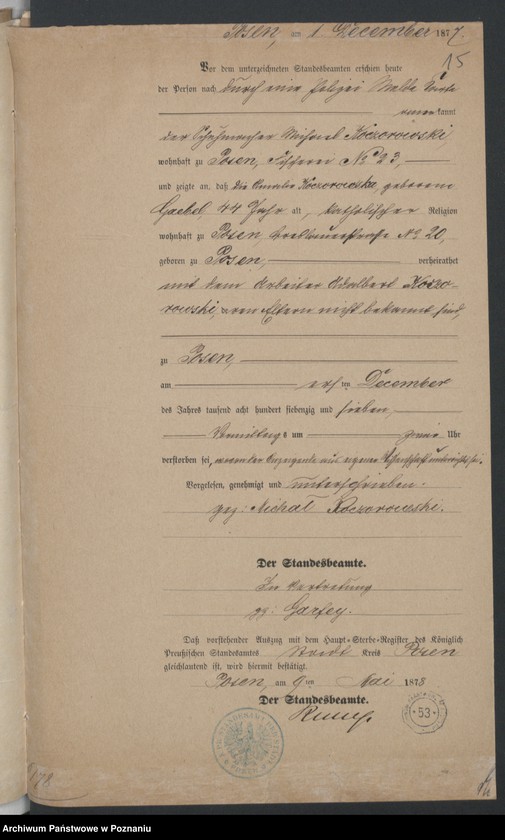 Posen, am 1 December 1877.
15
Vor dem unterzeichneten Standesbeamten erschien heute
der Person nach durch eine Polizei Melde Karte
kannt
der Schuhmacher Michael Koczorowski
wohnhaft zu Posen, No 23,
und zeigte an, daß die Amalie Koczorowska, geborene
Gaebel, 44 Jahr alt, katholischer Religion
wohnhaft zu Posen, Breslauerstraße No 20,
geboren zu Posen, verheirathet
mit dem Arbeiter Adalbert Koczo-
rowski, deren Eltern nicht bekannt sind,
zu Posen,
am ersten December
des Jahres tausend acht hundert siebenzig und sieben,
Vormittags um zwei Uhr
verstorben sei,
Vorgelesen, genehmigt und unterschrieben.
gez: Michał Koczorowski.
Der Standesbeamte.
In Vertretung
gz: Garfey.
Daß vorstehender Auszug mit dem Haupt-Sterbe-Register des Königlich
Preußischen Standesamtes Stadt Kreis Posen
gleichlautend ist, wird hiermit bestätigt.
Posen, am 9ten Mai 1878
Der Standesbeamte.
53
178
Archiwum Państwowe w Poznaniu